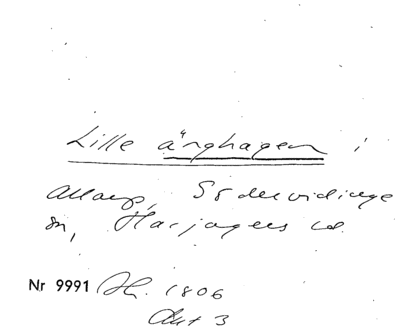 Lille änghagen i
Allarp, Södervidinge
sn, Harjagers hd.
Nr 9991 Sk. 1806
Akt 3